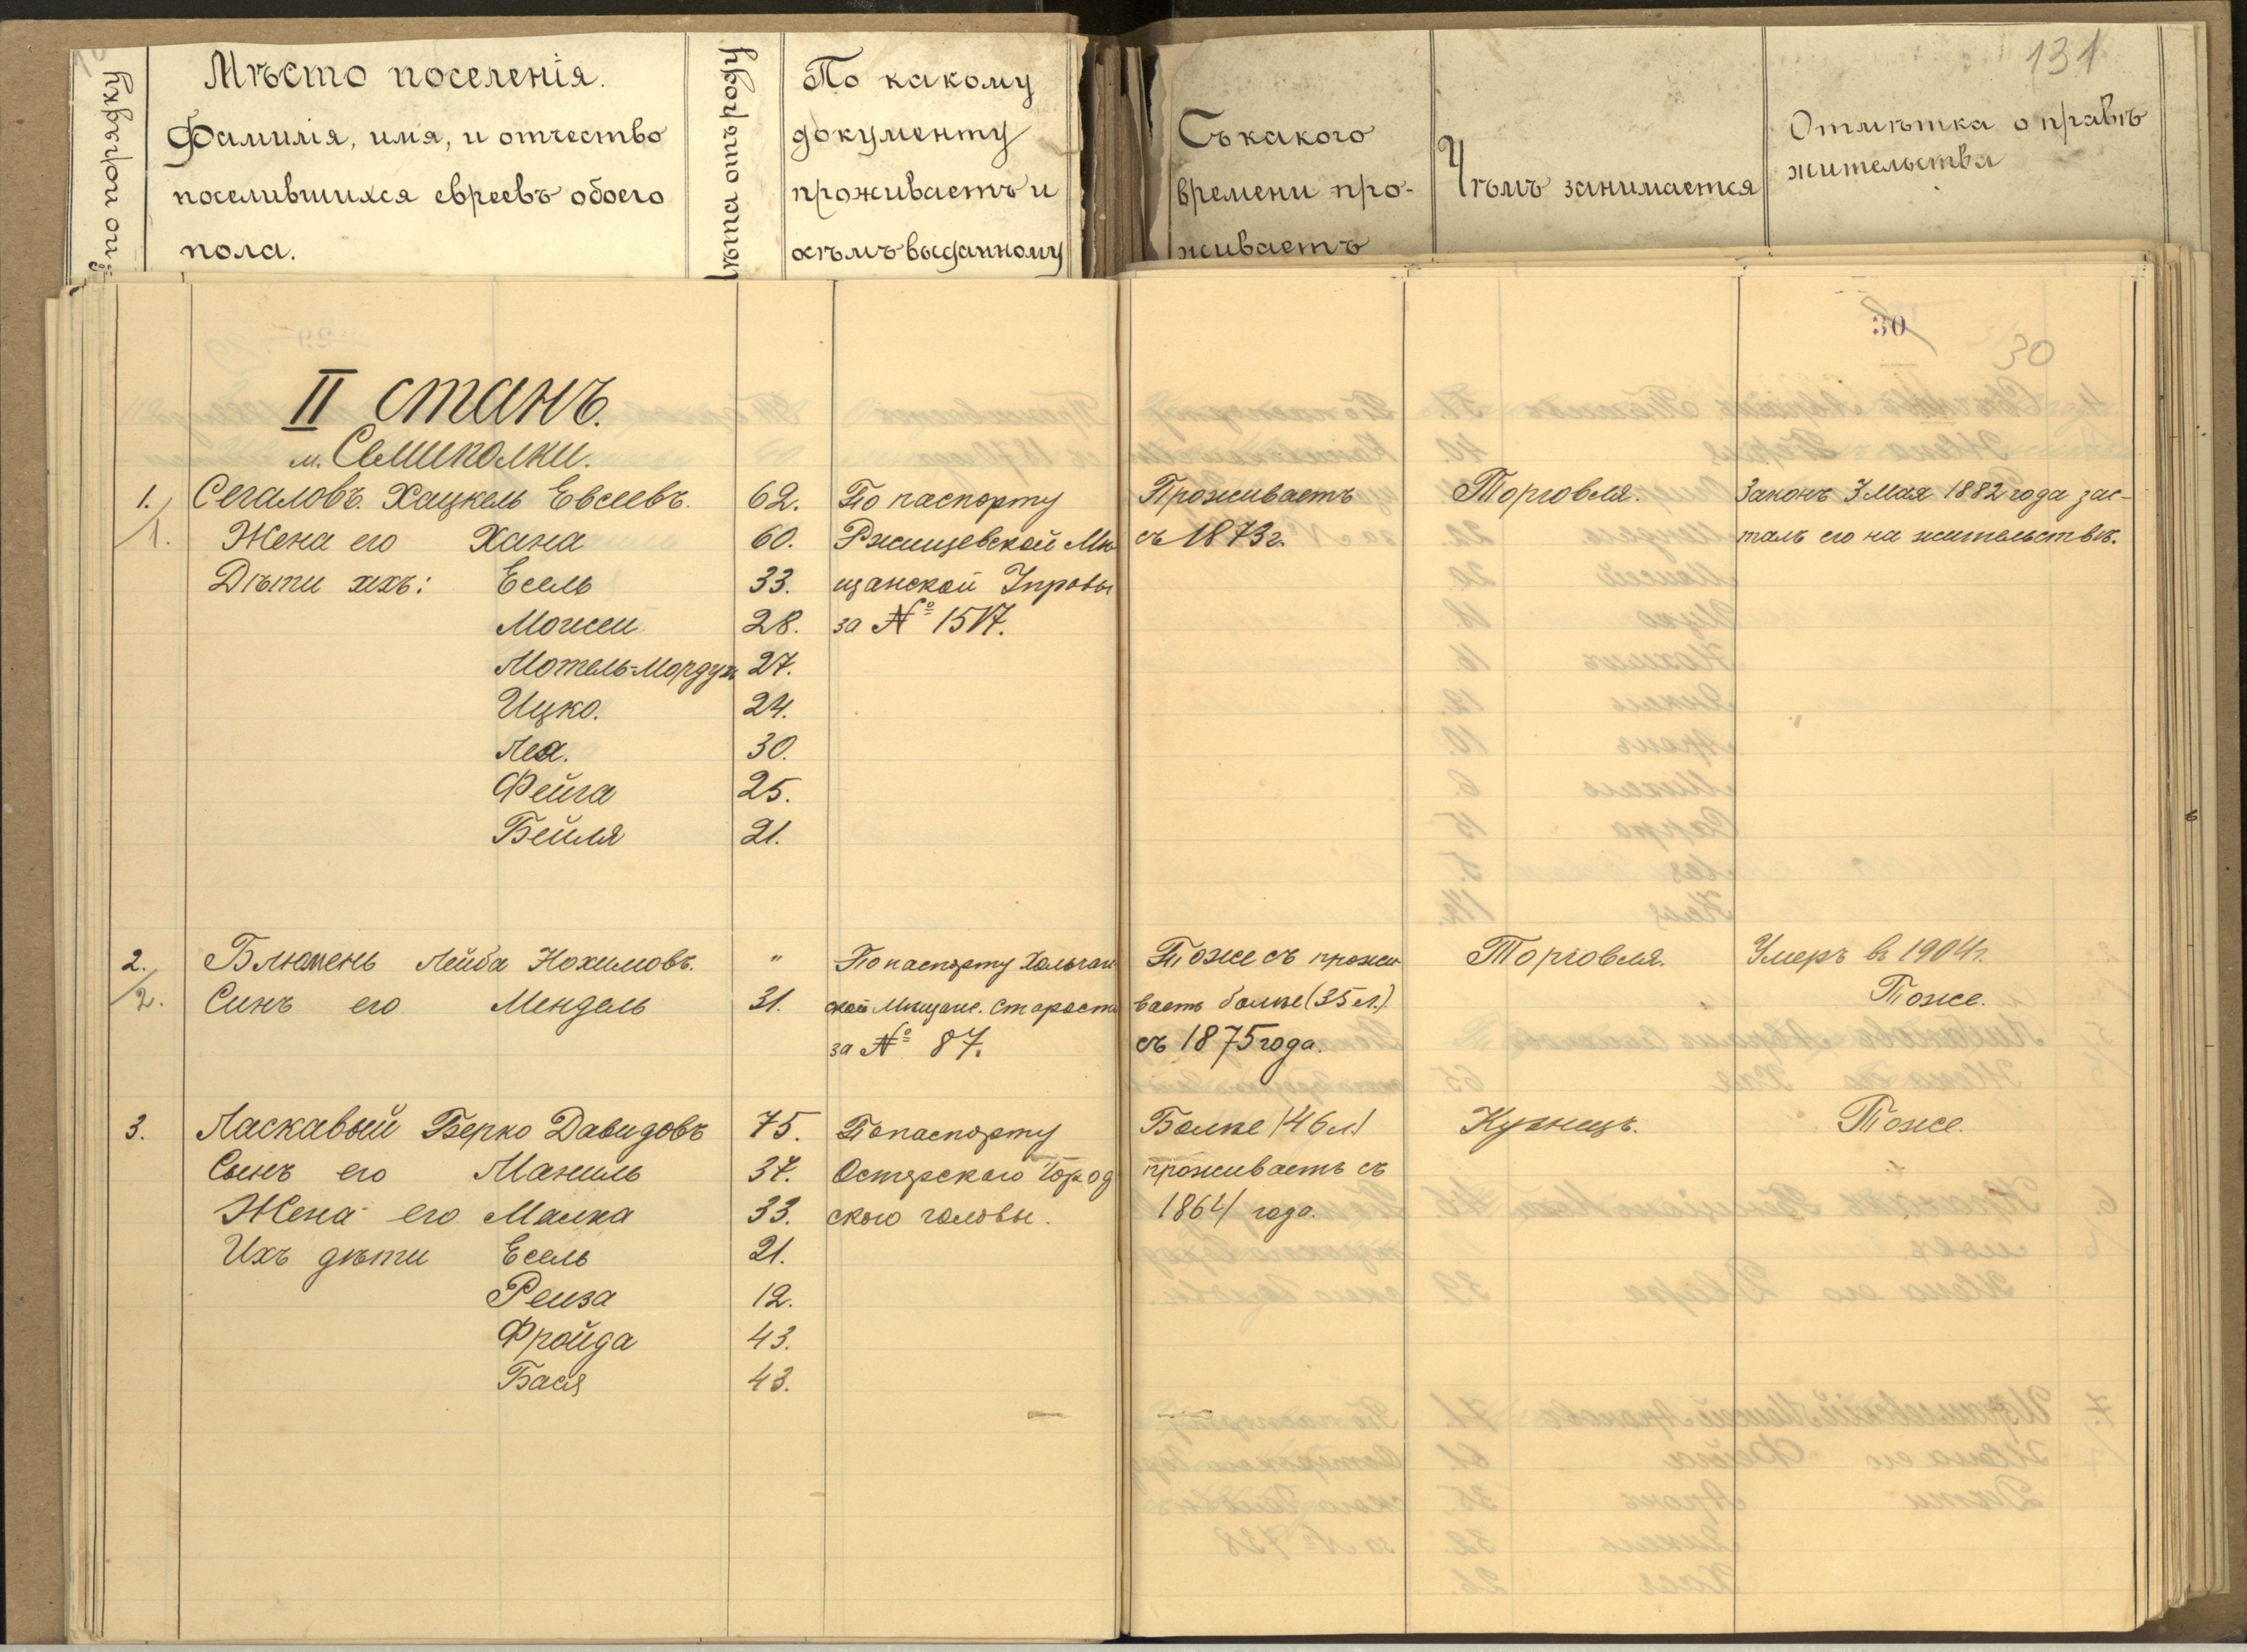 131
№ по порядку
Мѣсто поселенія.
Фамилія, имя, и отчество
поселившихся евреевъ обоего
пола.
Лѣта отъ роду
По какому
документу
проживаетъ и
кѣмъ выданному
Съ какого
времени про-
живаетъ
Чѣмъ занимается
Отмѣтка о правѣ
жительства
30
30
II станъ.
м. Семиполки.
1. Сегаловъ. Хацкель Евсеевъ. 62. По паспорту Проживаетъ Торговля. Законъ 3 Мая 1882 года зас-
1. Жена его Хана 60. Ржищевской Мѣ съ 1873 г. талъ его на жительствѣ.
Дѣти ихъ: Есель 33. щанской Управы
Моисей 28. за № 1517.
Мотель-Мордух 27.
Ицко. 24.
Лея. 30.
Фейга 25.
Бейля 21.
2. Блюмень Лейба Нохимовъ. " По паспорту Тоже съ прожи Торговля. Умеръ въ 1904 г.
2. Синъ его Мендель 31. ской Мѣщанс. Старости ваетъ болѣе (35 л.) Тоже.
за № 87. съ 1875 года.
3. Ласкавый Берко Давидовъ 75. По паспорту Болѣе (46 л.) Кузнецъ. Тоже.
Сынъ его Маниль 37. Остерскаго Город проживаетъ съ "
Жена его Малка 33. ского головы. 1864 года.
Ихъ дѣти Есель 21.
Рейза 12.
Фройда 43.
Бася 43.